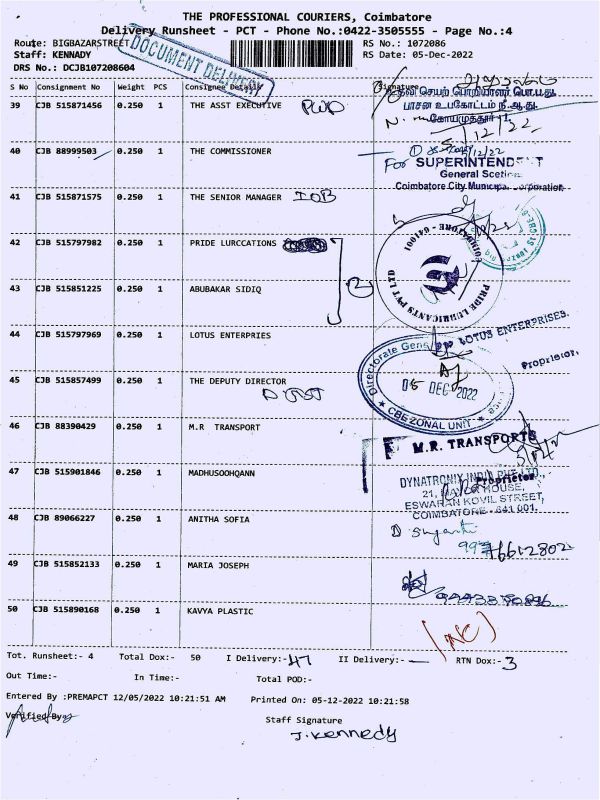 THE PROFESSIONAL COURIERS, Coimbatore
Delivery Runsheet - PCT - Phone No.:0422-3505555 - Page No.:4
Route: BIGBAZARSTREET
RS No.: 1072086
Staff: KENNADY
RS Date: 05-Dec-2022
DRS No.: DCJB107208604
DOCUMENT DELIVERY
S No Consignment No Weight PCS Consignee Details Signature
39 CJB 515871456 0.250 1 THE ASST EXECUTIVE PWD
உதவி செயற் பொறியாளர், பொ.ப.து.
பாசன உபகோட்டம் நீ.ஆ.து.
கோயமுத்தூர்
5/12/22
40 CJB 88999503 0.250 1 THE COMMISSIONER
5/12/22
For SUPERINTENDENT
General Scetion
Coimbatore City Municipal Corporation
41 CJB 515871575 0.250 1 THE SENIOR MANAGER IOB
42 CJB 515797982 0.250 1 PRIDE LURCCATIONS
PRIDE LUBRICANTS PVT LTD
COIMBATORE - 641001
43 CJB 515851225 0.250 1 ABUBAKAR SIDIQ
2
44 CJB 515797969 0.250 1 LOTUS ENTERPRIES
LOTUS ENTERPRISES.
Proprietor,
45 CJB 515857499 0.250 1 THE DEPUTY DIRECTOR
Directorate Gene
05 DEC 2022
CBE ZONAL UNIT
46 CJB 88390429 0.250 1 M.R TRANSPORT
M.R. TRANSPORTS
Proprietor
47 CJB 515901846 1 MADHUSOOHQANN
DYNATRONIX INDIA PVT LTD.,
21, MAYOR HOUSE,
ESWARAN KOVIL STREET,
COIMBATORE - 641 001.
48 CJB 89066227 0.250 1 ANITHA SOFIA
49 CJB 515852133 0.250 1 MARIA JOSEPH
50 CJB 515890168 0.250 1 KAVYA PLASTIC
(NC)
Tot. Runsheet:- 4 Total Dox:- 50 I Delivery:- 47 II Delivery:- — RTN Dox:- 3
Out Time:- In Time:- Total POD:-
Entered By :PREMAPCT 12/05/2022 10:21:51 AM Printed On: 05-12-2022 10:21:58
Verified By:
Staff Signature
J. Kennedy